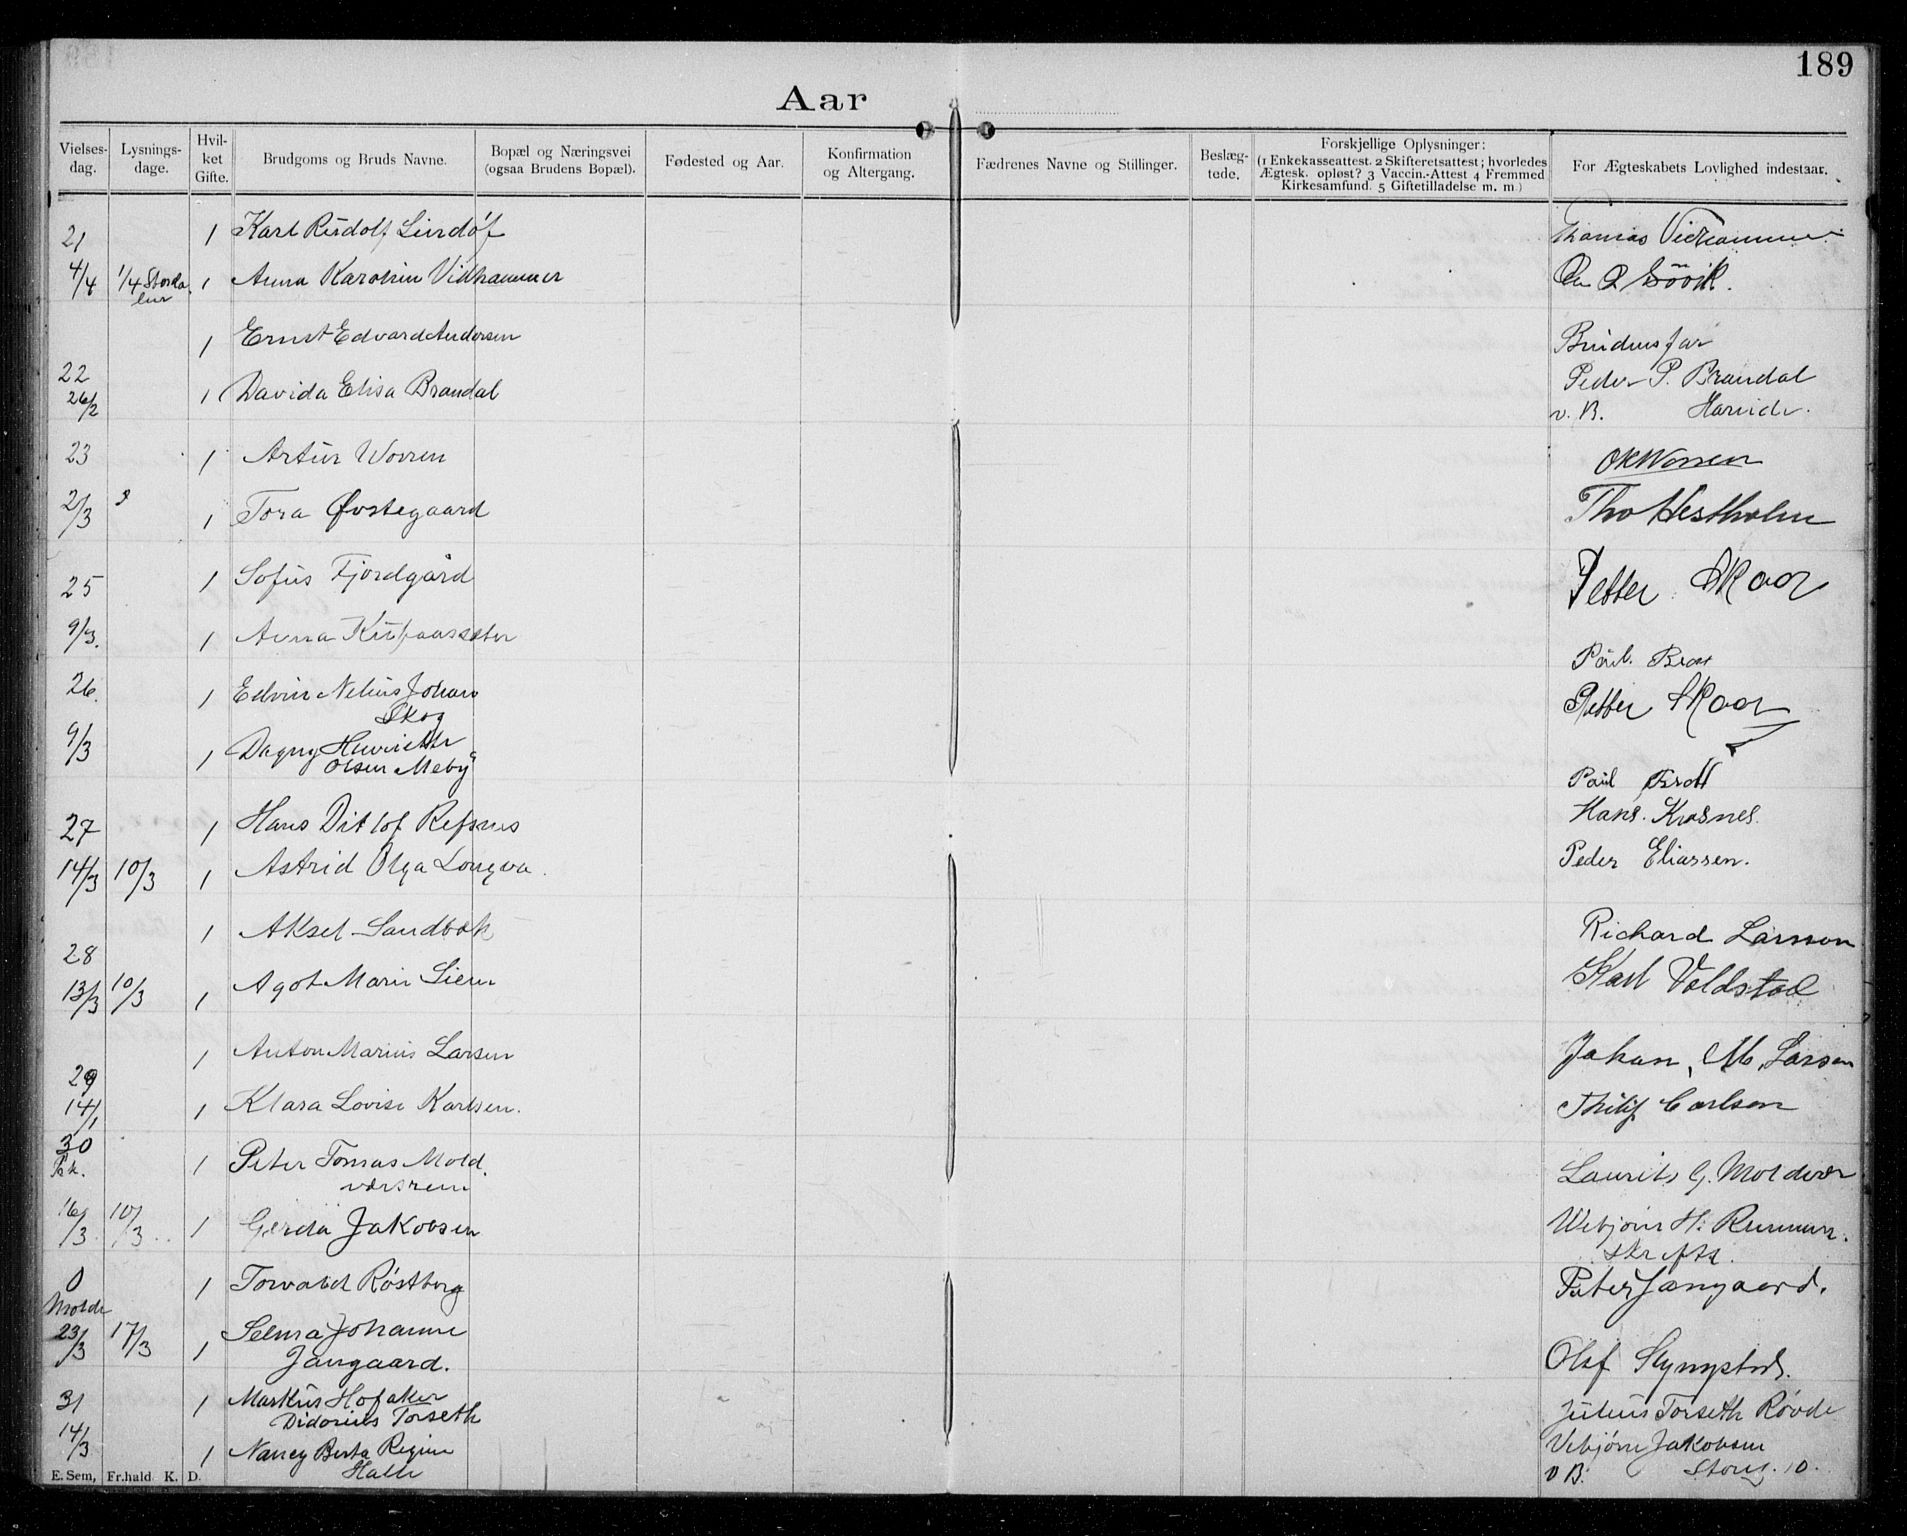 189
Aar
Vielses-
dag.
Lysnings-
dage.
Hvil-
ket
Gifte.
Brudgoms og Bruds Navne.
Bopæl og Næringsvei
(ogsaa Brudens Bopæl).
Fødested og Aar.
Konfirmation
og Altergang.
Fædrenes Navne og Stillinger.
Beslæg-
tede.
Forskjellige Oplysninger:
(1 Enkekasseattest. 2 Skifteretsattest; hvorledes
Ægtesk. opløst? 3 Vaccin.-Attest 4 Fremmed
Kirkesamfund. 5 Giftetilladelse m. m)
For Ægteskabets Lovlighed indestaar.
21 1 Karl Rudolf Lindøf Thomas Vidhammer
4/4 1/4 1 Anna Karolin Vidhammer
1 Ernst Edvard Andersen Brudens far
22 Peder P. Brandal
26/2 1 Davida Elisa Brandal v. B. Hareide.
23 1 Artur Worren OK Worren
2/3 3 1 Tora Øvstegaard Tho Hestholm
25 1 Sofus Fjordgård Petter Skaar
9/3. 1 Anna
Paul Bratt
26. 1 Edvin Nelius Johan Petter Skaar
Skog
9/3 1 Dagny Henriette
Olsen Meby Paul Bratt
27 1 Hans Ditlof Refsnes Hans Krosnes.
14/3 10/3 1 Astrid Olga Longva. Peder Eliassen.
28 1 Aksel Sandbak Richard Larsson
13/3 10/3 1 Agot Marie Liem Karl Voldstad
29 1 Anton Marius Larsen Johan, M. Larsen
14/1 1 Klara Lovise Karlsen. Philip Carlsen
30
1 Peter Tomas Mold. Laurits G. Moldvær
værsrem
16/3 10/3 1 Gerda Jakobsen Webjørn H.
0 1 Torvald Røstberg Peter Jangaard.
Molde
23/3 17/3 1 Selma Johanne
Jangaard. Olaf
31 1 Markus Hofaker Julius Torseth Røvde
Didorius Torseth
14/3 1 Nancy Berta Regine Vebjørn Jakobsen
Halle v B. Storg. 10.
E. Sem, Fr.hald K. D.